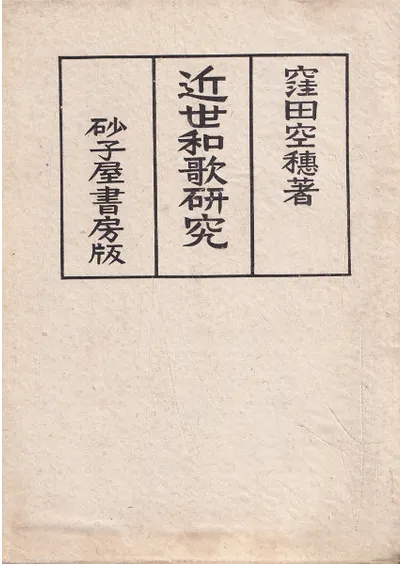 窪田空穗著
近世和歌硏究
砂子屋書房版